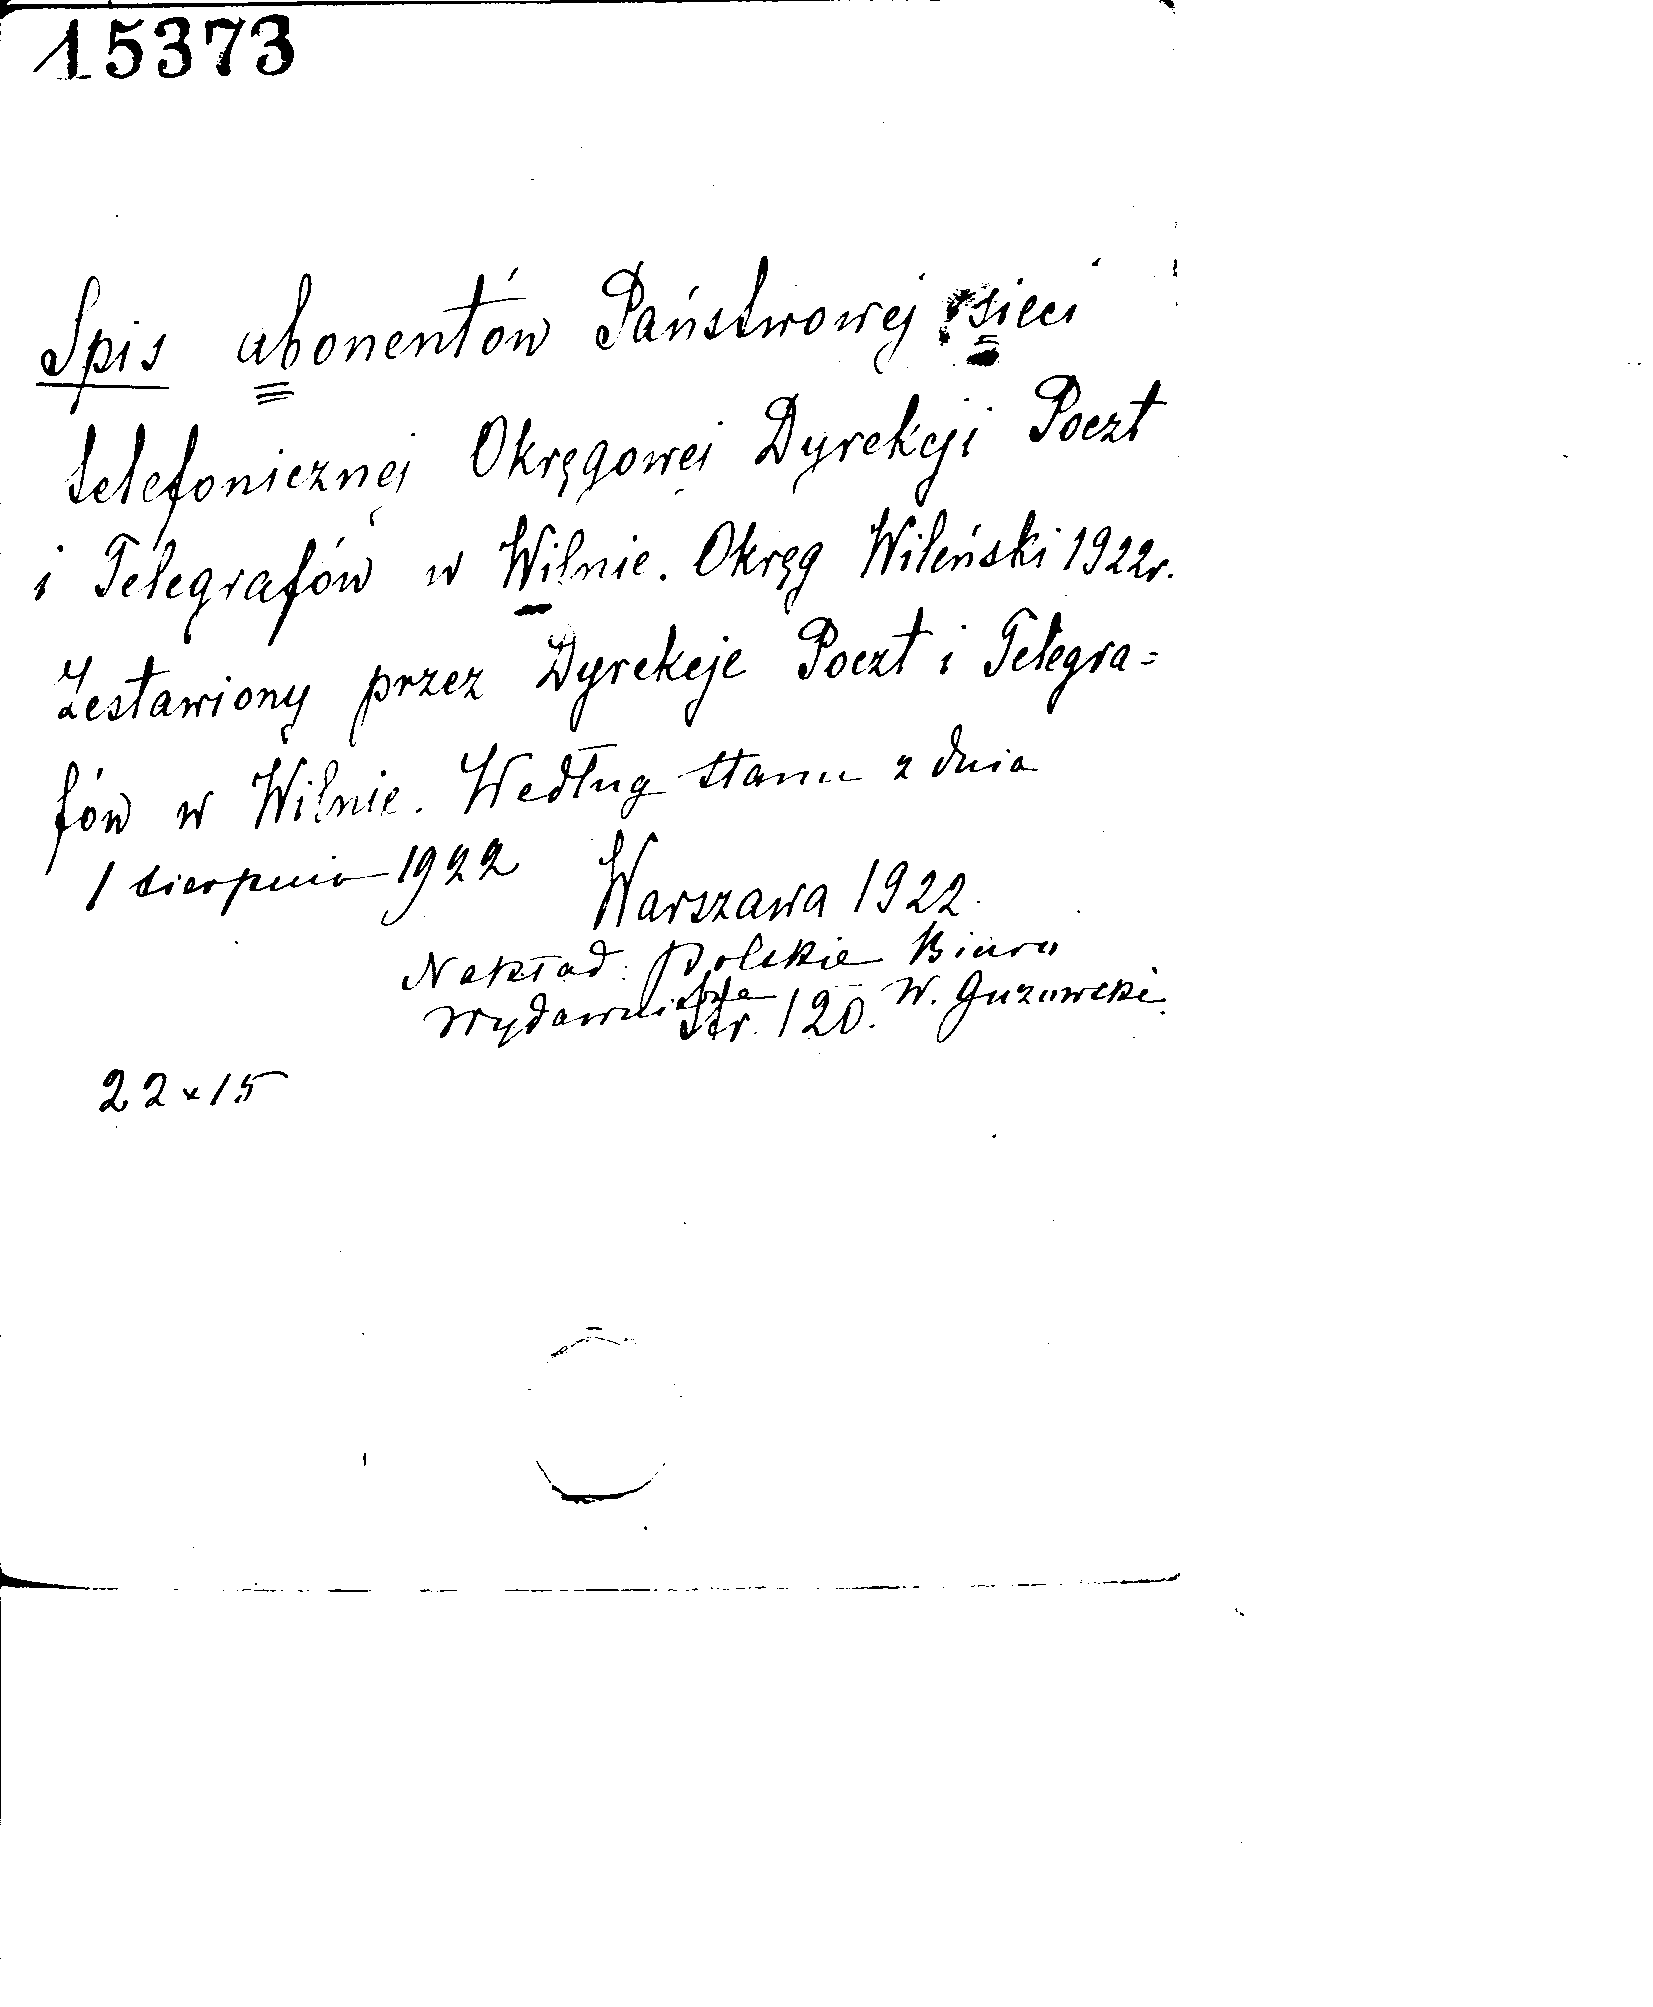 15373
Spis abonentów Państwowej sieci
telefonicznej Okręgowej Dyrekcji Poczt
i Telegrafów w Wilnie. Okręg Wileński 1922r.
Zestawiony przez Dyrekcje Poczt i Telegra=
fów w Wilnie. Według stanu z dnia
1 sierpnia 1922 Warszawa 1922.
Nakład: Polskie Biuro
Wydawnicze W. Guzowski.
Str. 120.
22x15